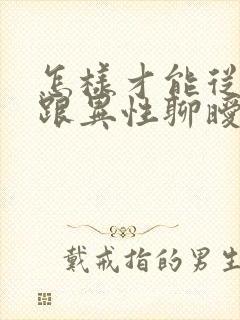 怎樣才能從
跟異性聊曖
戴戒指的男生